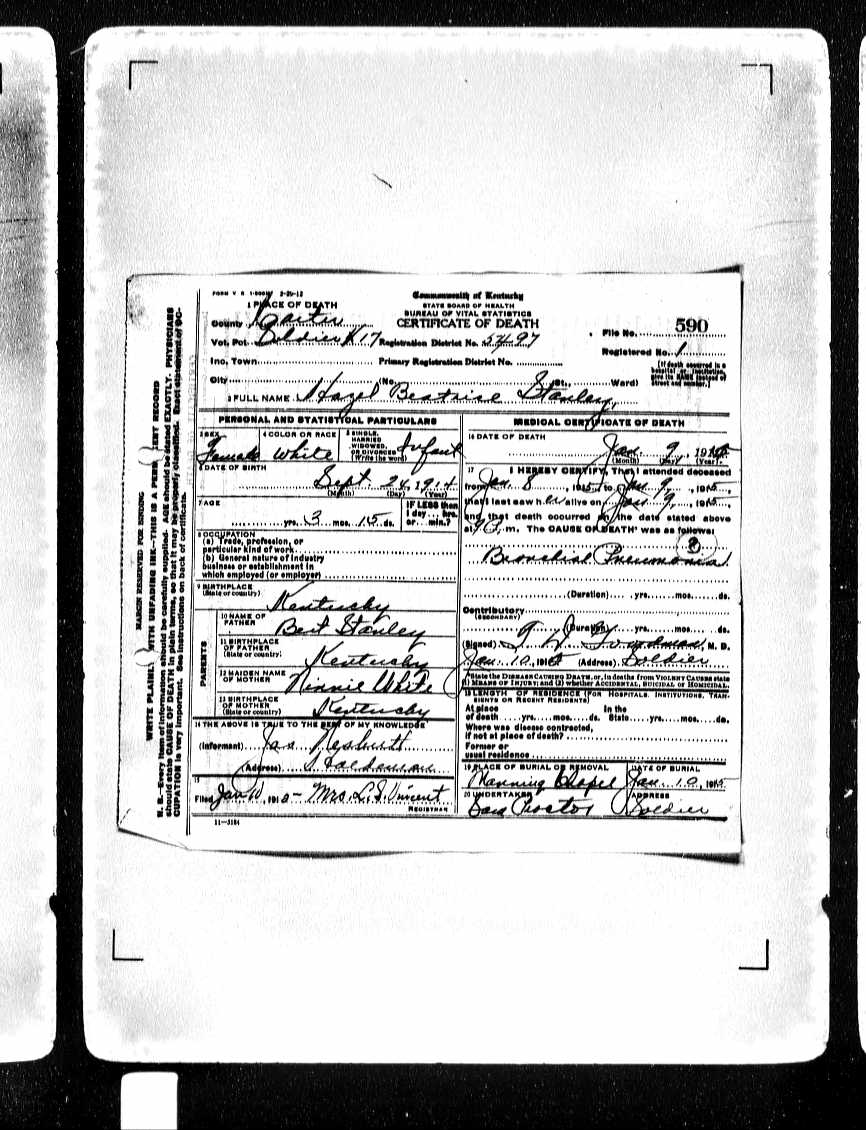 FORM V. S. 2-20-12
Commonwealth of Kentucky
STATE BOARD OF HEALTH
BUREAU OF VITAL STATISTICS
CERTIFICATE OF DEATH
1 PLACE OF DEATH
County Carter
Vot. Pct. Soldier K17 Registration District No. 5497
File No. 590
Registered No. 1
Inc. Town Primary Registration District No.
City (No. St., Ward)
[If death occurred in a hospital or institution, give its NAME instead of street and number.]
2 FULL NAME Hazel Beatrise Stanley
PERSONAL AND STATISTICAL PARTICULARS
3 SEX Female
4 COLOR OR RACE White
5 SINGLE, MARRIED WIDOWED, OR DIVORCED (Write the word) Infant
6 DATE OF BIRTH
Sept 24, 1914
(Month) (Day) (Year)
7 AGE
yrs. 3 mos. 15 ds.
IF LESS than 1 day ... hrs. or ... min.?
8 OCCUPATION
(a) Trade, profession, or
particular kind of work
(b) General nature of industry
business or establishment in
which employed (or employer)
9 BIRTHPLACE
(State or country) Kentucky
PARENTS
10 NAME OF FATHER Bert Stanley
11 BIRTHPLACE OF FATHER (State or country) Kentucky
12 MAIDEN NAME OF MOTHER White
13 BIRTHPLACE OF MOTHER (State or country) Kentucky
14 THE ABOVE IS TRUE TO THE BEST OF MY KNOWLEDGE
(Informant) Jas Nesbitt
(Address) Haldeman
15
Filed Jan 10, 191 Mrs. L. S. Vincent
REGISTRAR
11-3184
MEDICAL CERTIFICATE OF DEATH
16 DATE OF DEATH
Jan. 9, 1915
(Month) (Day) (Year)
17 I HEREBY CERTIFY, That I attended deceased
from Jan. 8, 1915, to Jan 9, 1915,
that I last saw her alive on Jan 9, 1915,
and that death occurred on the date stated above
at 9 m. The CAUSE OF DEATH* was as follows:
Bronchial Pneumonia
(Duration) yrs. mos. ds.
Contributory
(SECONDARY)
(Duration) yrs. mos. ds.
(Signed) M. D.
Jan. 10, 1915 (Address) Soldier
*State the DISEASE CAUSING DEATH, or, in deaths from VIOLENT CAUSES state
(1) MEANS OF INJURY; and (2) whether ACCIDENTAL, SUICIDAL or HOMICIDAL.
18 LENGTH OF RESIDENCE (FOR HOSPITALS, INSTITUTIONS, TRANSIENTS OR RECENT RESIDENTS)
At place of death yrs. mos. ds. In the State yrs. mos. ds.
Where was disease contracted,
if not at place of death?
Former or
usual residence
19 PLACE OF BURIAL OR REMOVAL Manning Chapel
DATE OF BURIAL Jan. 10, 1915
20 UNDERTAKER Proctor
ADDRESS Soldier
MARGIN RESERVED FOR BINDING
WRITE PLAINLY WITH UNFADING INK—THIS IS A PERMANENT RECORD
N. B.—Every item of information should be carefully supplied. AGE should be stated EXACTLY. PHYSICIANS
should state CAUSE OF DEATH in plain terms, so that it may be properly classified. Exact statement of OC-
CUPATION is very important. See instructions on back of certificate.